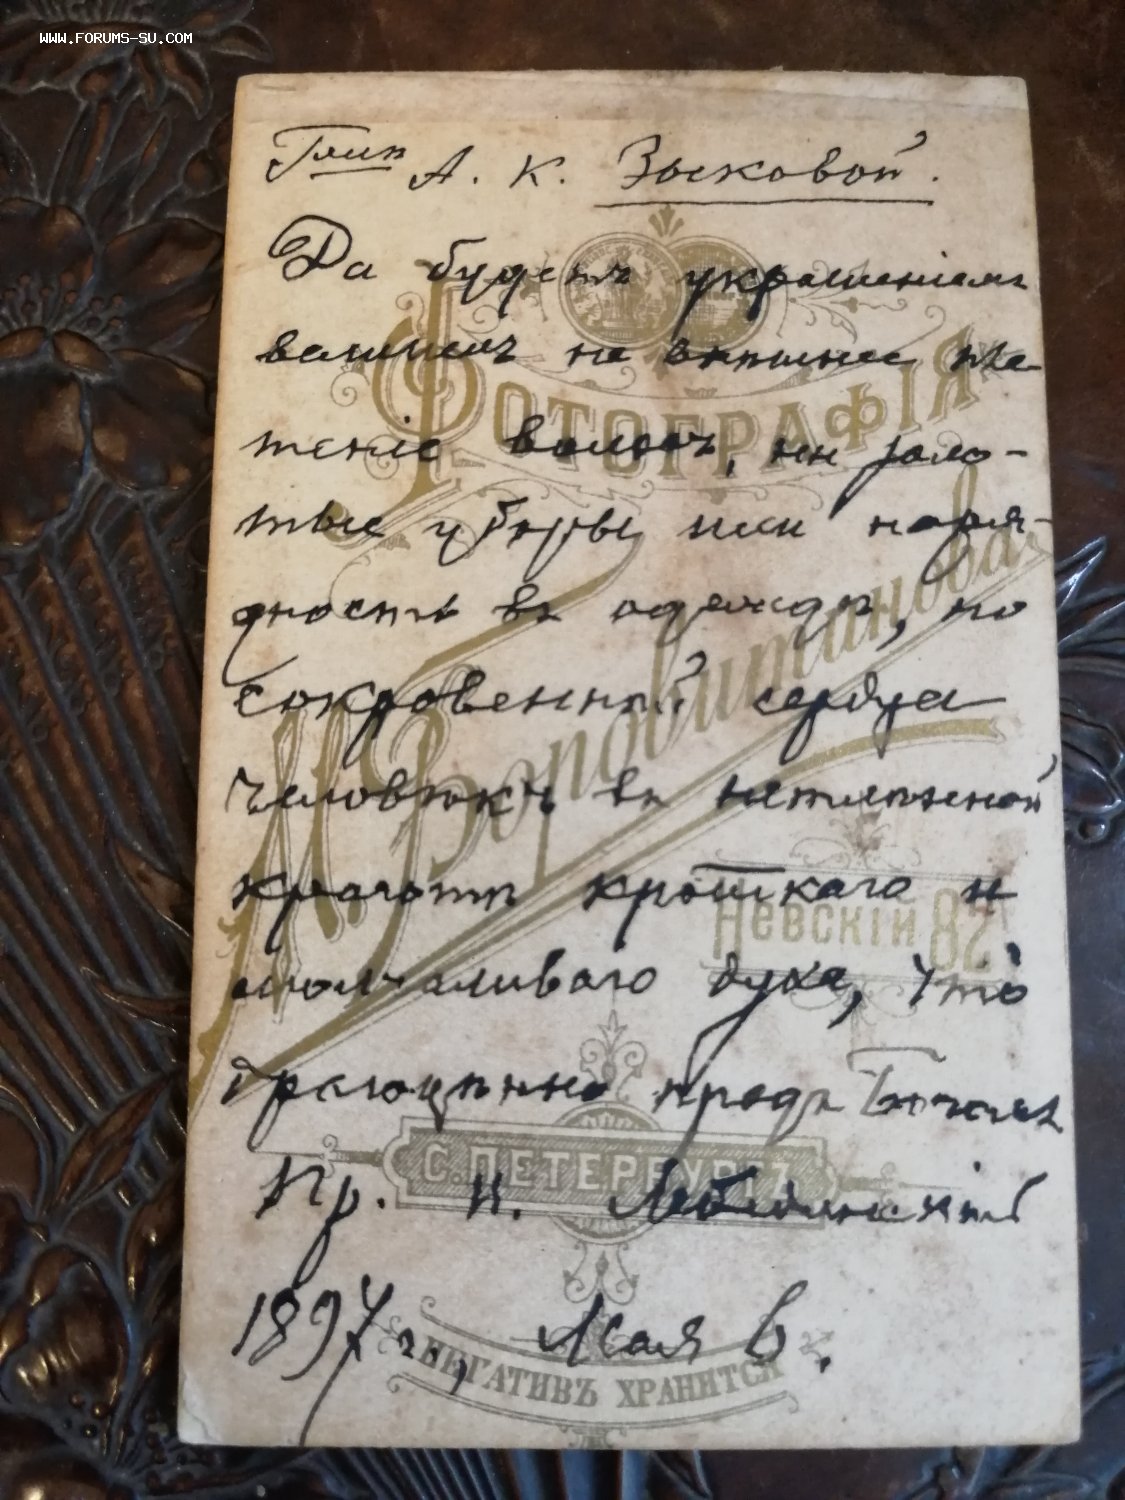 WWW.FORUMS-SU.COM
А. К. Зысковой.
Да будетъ украшеніемъ
вашимъ не внѣшнее пле-
теніе волосъ, ни золо-
тые уборы или наря-
дность въ одеждѣ, но
сокровенный сердца
человѣкъ въ нетлѣнной
красотѣ кроткаго и
молчаливаго духа, что
драгоцѣнно предъ Богомъ
Пр. П. Лебединскій
1897 г., Мая 6.
ФОТОГРАФІЯ
М. Боровитинова
НЕВСКІЙ 82
С. ПЕТЕРБУРГЪ
НЕГАТИВЪ ХРАНИТСЯ